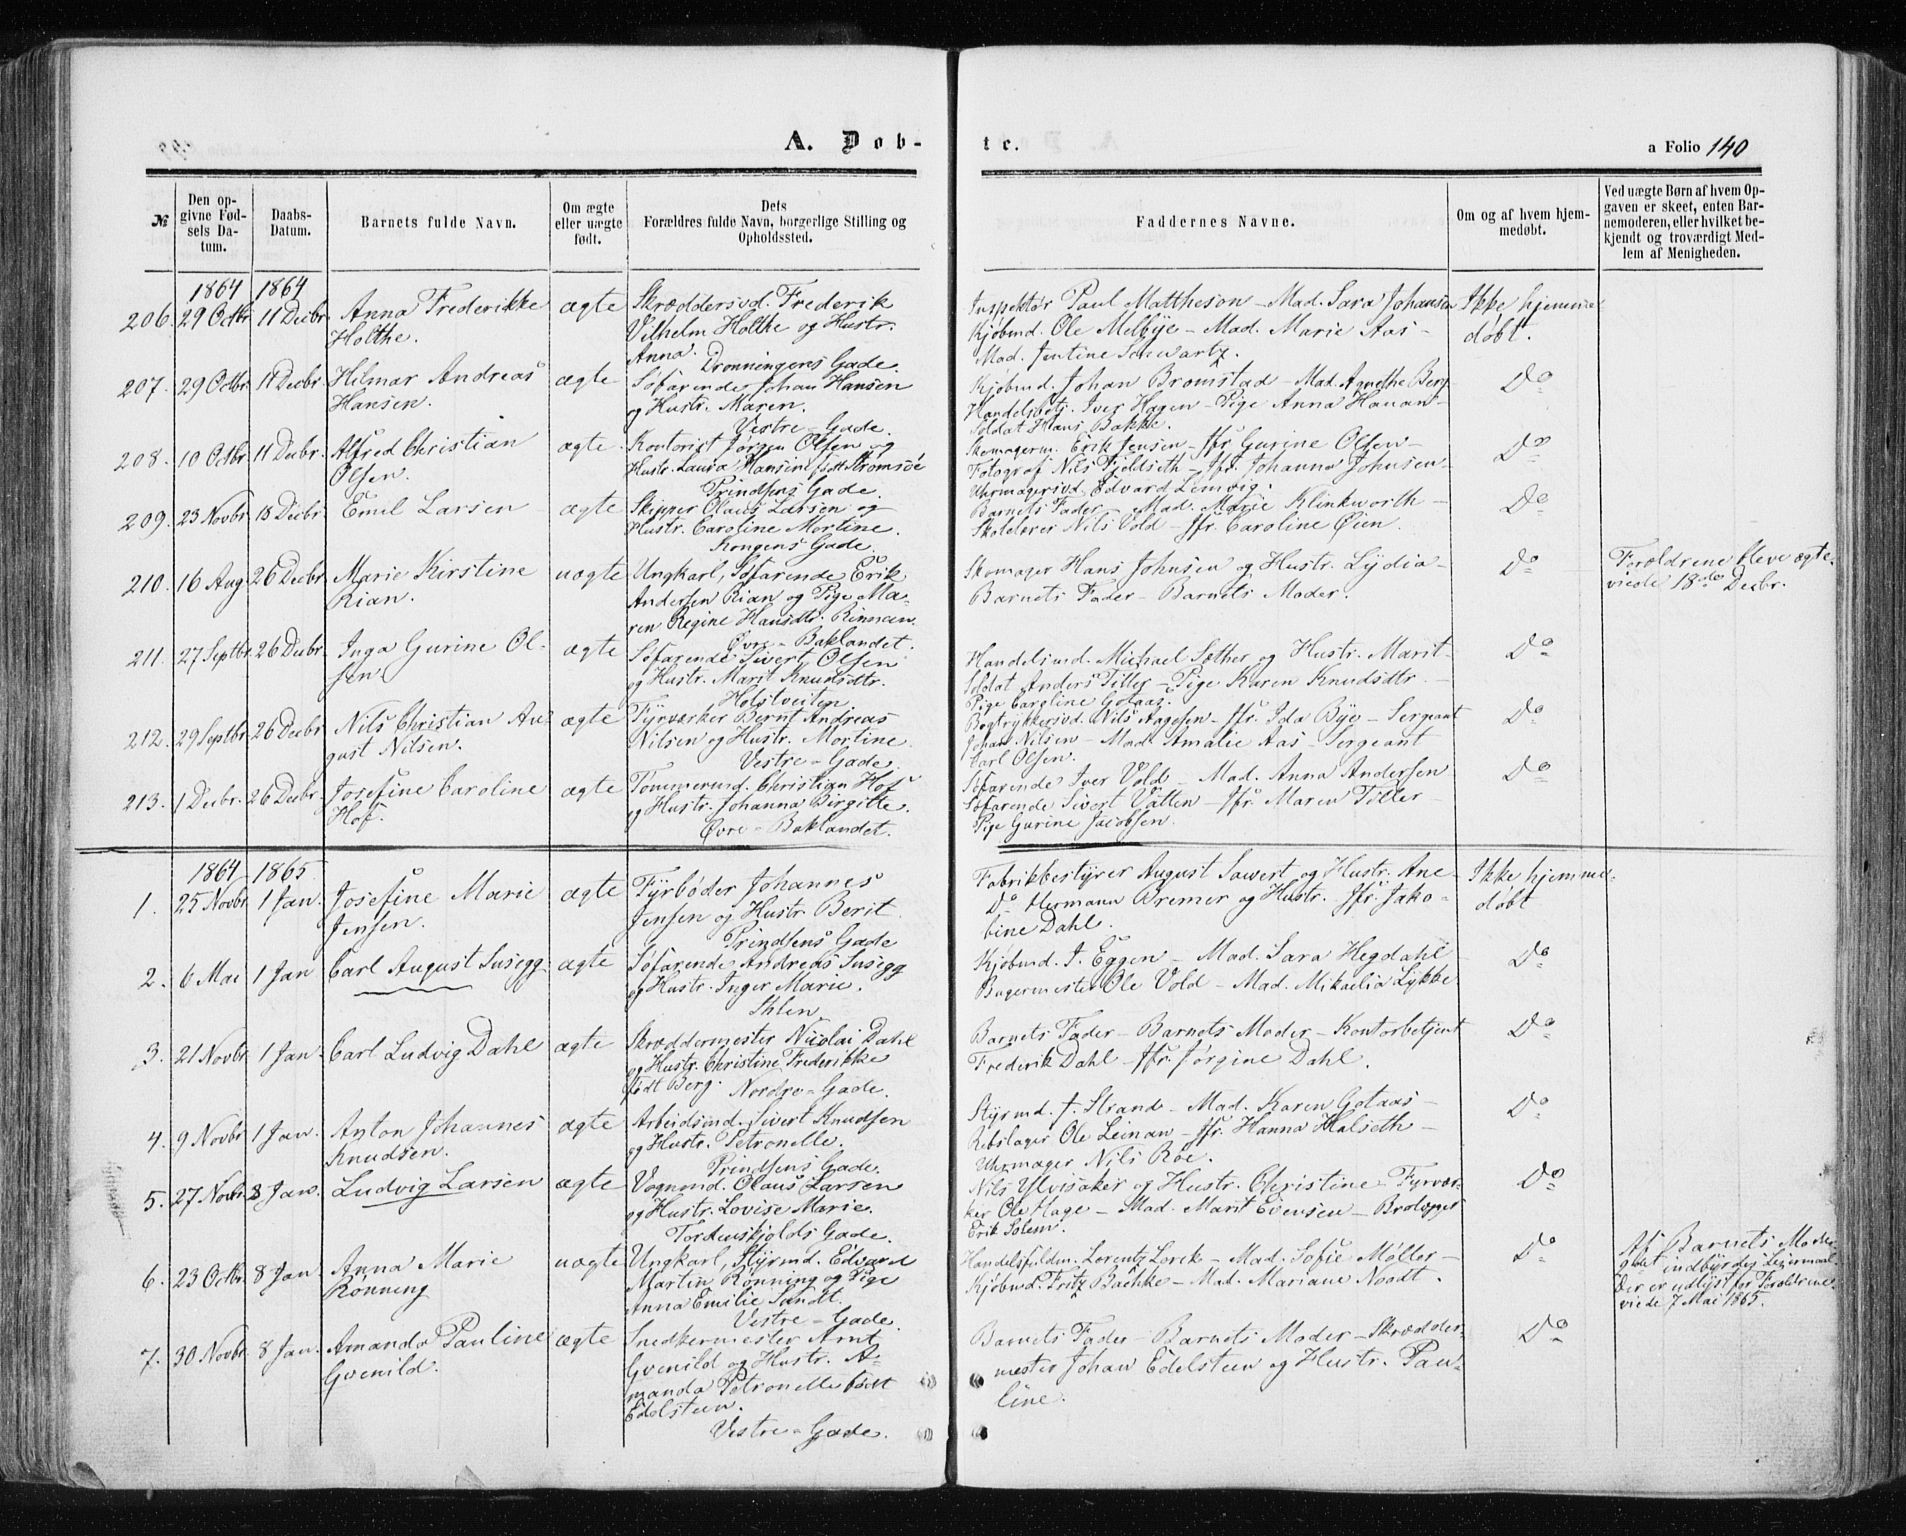 A. Døb-
№
Den op-
givne Fød-
sels Da-
tum.
Daabs-
Datum.
Barnets fulde Navn.
Om ægte
eller uægte
født.
Dets
Forældres fulde Navn, borgerlige Stilling og
Opholdssted.
1864 1864
206. 29 Octbr 11 Decbr Anna Frederikke ægte Skræddersvd. Frederik
Holthe. Vilhelm Holthe og Hustr.
Anna. Dronningens Gade.
207. 29 Octbr 11 Decbr. Hilmar Andreas ægte Søfarende Johan Hansen
Hansen. og Hustr. Maren.
Vestre-Gade.
208. 10 Octbr 11 Decbr. Alfred Christian ægte. Kontorist Jørgen Olsen og
Olsen. Hustr. Laura Hansine født Strømsøe
Prindsens Gade.
209. 23 Novbr 18 Decbr. Emil Larsen ægte Skipper Olaus Larsen og
Hustr. Caroline Mortine.
Kongens Gade.
210. 16 Aug. 26 Decbr. Marie Kirstine uægte Ungkarl, Søfarende Erik
Rian. Andersen Rian og Pige Ma-
ren Regine Hansdtr. Rinnan.
Øvre-Baklandet.
211. 27 Septbr 26 Decbr. Inga Gurine Ol- ægte Søfarende Sivert Olsen
sen og Hustr. Marit Knudsdtr.
Holstveiten
212. 29 Septbr. 26 Decbr Nils Christian Au- ægte Fyrværker Bernt Andreas
gust Nilsen. Nilsen og Hustr. Mortine
Vestre-Gade.
213. 1 Decbr. 26 Decbr. Josefine Caroline ægte Tømmermd. Christian Hof
Hof. og Hustr. Johanna Birgitte.
Øvre-Baklandet.
1864 1865
1. 25 Novbr 1 Jan. Josefine Marie ægte Fyrbøder Johannes
Jensen. Jensen og Hustr Berit
Prindsens Gade
2. 6 Mai 1 Jan Carl August Susegg ægte Søfarende Andreas Susegg
og Hustr. Inger Marie.
Ihlen
3. 21 Novbr 1 Jan. Carl Ludvig Dahl ægte Skræddermester Nicolai Dahl
og Hustr. Christine Frederikke
født Berg. Nordre-Gade.
4. 9 Novbr 1 Jan. Anton Johannes ægte Arbeidsmd. Sivert Knudsen
Knudsen. og Hustr. Petronelle.
Prindsens Gade.
5. 27 Novbr 8 Jan. Ludvig Larsen ægte Vognmd. Olaus Larsen
og Hustr. Lovise Marie.
Tordenskjolds Gade.
6. 23 Octbr. 8 Jan. Anna Marie uægte Ungkarl, Styrmd. Edvard
Rønning Martin Rønning og Pige
Anna Emilie Sandt.
Vestre-Gade.
7. 30 Novbr. 8 Jan. Amanda Pauline ægte Snedkermester Arnt
Gvenild. Gvenild og Hustr. A-
manda Petronelle født
Edelsteen.
Vestre-Gade.
te.
a Folio 140
Faddernes Navne.
Om og af hvem hjem-
medøbt.
Ved uægte Børn af hvem Op-
gaven er skeet, enten Bar-
nemoderen, eller hvilket be-
kjendt og troværdigt Med-
lem af Menigheden.
Inspektør Paul Mattheson - Mad. Sara Johansen Ikke hjemme
Kjøbmd. Ole Melbye - Mad. Marie Aas - døbt.
Mad. Jentine Schwartz.
Kjøbmd. Johan Bromstad - Mad. Agnethe Berg Do
Handelsbetj. Iver Hagen - Pige Anna Hanan-
Soldat Hans Bakke.
Skomagerm. Erik Jensen - Jfr. Gurine Olsen - Do
Fotograf Nils Fjeldseth - Jfr. Johanna Johnsen -
Uhrmagersvd. Edvard Lemvig.
Barnets Fader - Mad. Marie Klinkworth - Do
Skolelærer Nils Vold - Jfr. Caroline Øien.
Skomager Hans Johnsen og Hustr. Lydia - Do Forældrene bleve ægte-
Barnets Fader - Barnets Moder. viede 18de Decbr.
Handelsmd. Michael Sæther og Hustr. Marit - Do
Soldat Anders Tiller - Pige Karen Knudsdtr. -
Pige Caroline Gotaas.
Bogtrykkersvd. Nils Aagesen - Jfr. Ida Bye - Sergeant Do
Johan Nilsen - Mad. Amalie Aas - Sergeant
Carl Olsen.
Søfarende Iver Vold - Mad. Anna Andersen Do
Søfarende Sivert Vatten - Jfr. Maren Tiller -
Pige Gurine Jacobsen.
Fabrikbestyrer August Sawert og Hustr. Ane - Ikke hjemme-
Do Hermann Bremer og Hustr. Jfr. Jako- døbt
bine Dahl.
Kjøbmd. I. Eggen - Mad. Sara Hegdahl Do
Bagermester Ole Vold - Mad. Mikaelia Lykke
Barnets Fader - Barnets Moder - Kontorbetjent Do
Frederik Dahl - Jfr. Jørgine Dahl.
Styrmd. J. Strand - Mad. Karen Gotaas - Do
Rebslager Ole Leinan - Jfr. Hanna Halseth -
Uhrmager Nils Røe.
Nils Ylvisaker og Hustr. Christine - Fyrvær- Do
ker Ole Hage - Mad. Marit Evensen - Brolægger
Erik Solem.
Handelsfuldm. Lorentz Lorck - Mad. Sofie Møller - Do Af Barnets Moder
Kjøbmd. Fritz Bachke - Mad. Mariane Noodt. indbyrdes Leiermaal.
Der er udlyst for Forældrene
viede 7 Mai 1865.
Barnets Fader - Barnets Moder - Skrædder- Do
mester Johan Edelsteen og Hustr. Pau-
line.